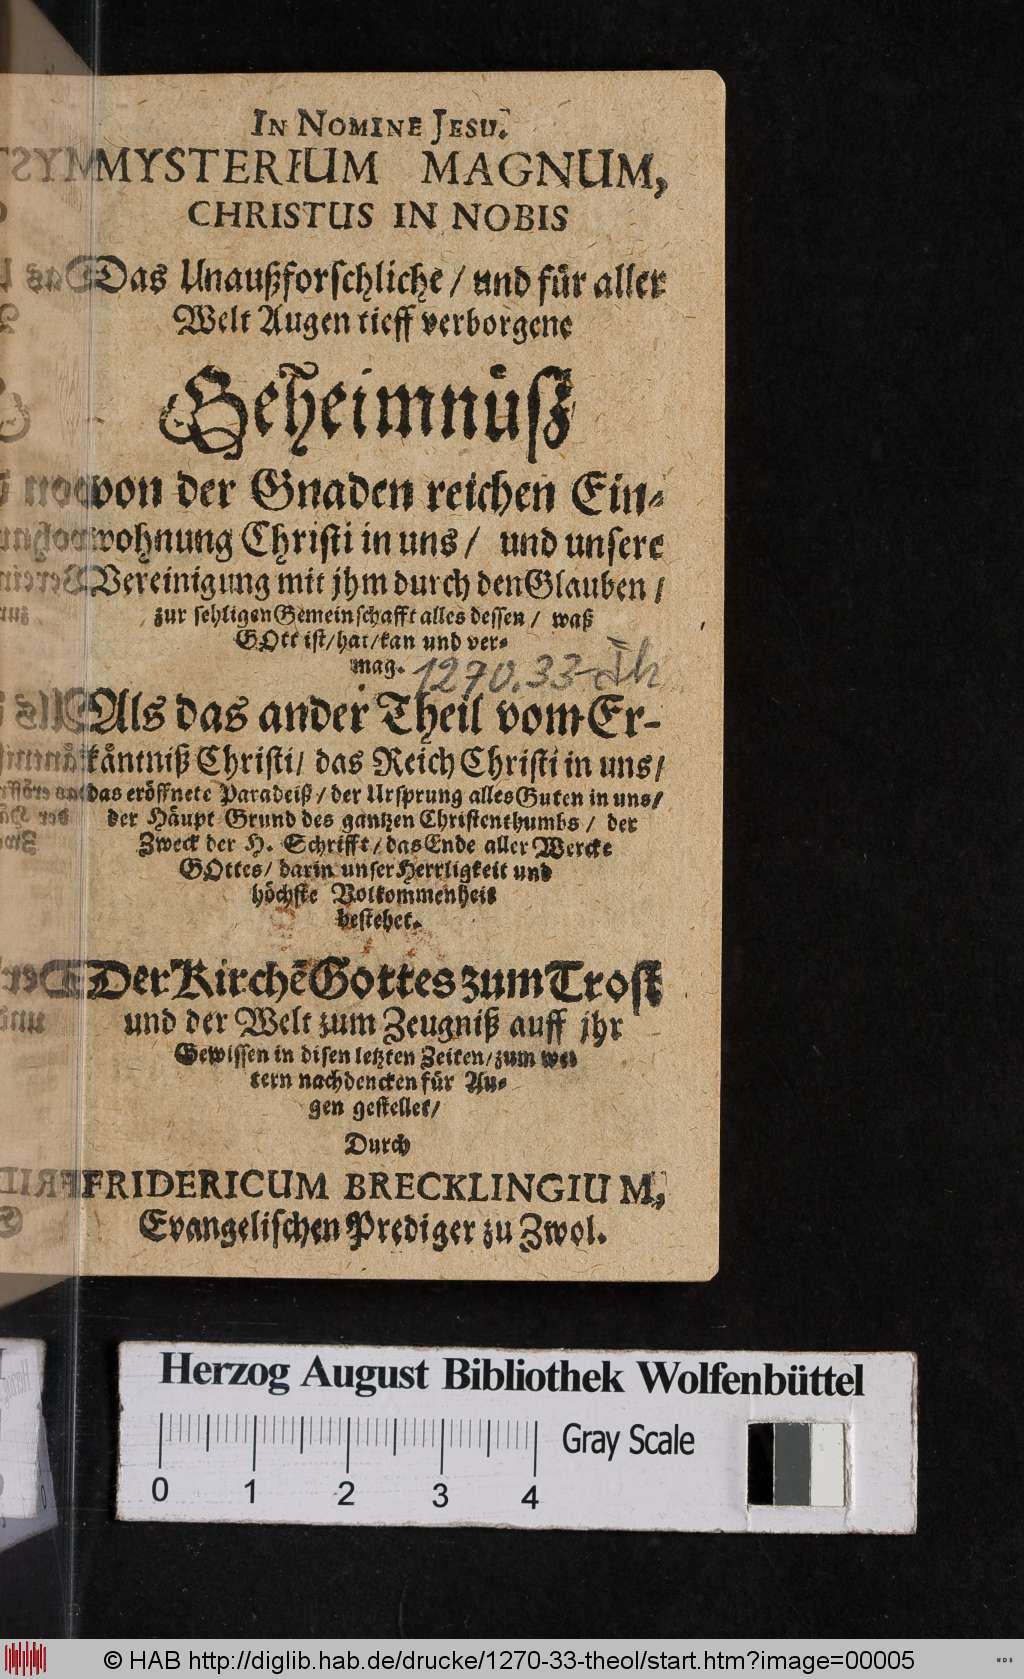 IN NOMINE JESU.
MYSTERIUM MAGNUM,
CHRISTUS IN NOBIS
Das Unaußforschliche / und für aller
Welt Augen tieff verborgene
Geheimnüß
von der Gnaden reichen Ein-
wohnung Christi in uns / und unsere
Vereinigung mit jhm durch den Glauben /
zur sehligen Gemeinschafft alles dessen / waß
GOtt ist / hat / kan und ver-
mag.
1270.33-Th
Als das ander Theil vom Er-
käntniß Christi / das Reich Christi in uns /
das eröffnete Paradeiß / der Ursprung alles Guten in uns /
der Häupt Grund des gantzen Christenthumbs / der
Zweck der H. Schrifft / das Ende aller Wercke
GOttes / darin unser Herrligkeit und
höchste Volkommenheit
bestehet.
Der Kirchē Gottes zum Trost
und der Welt zum Zeugniß auff jhr
Gewissen in disen letzten Zeiten / zum wei
tern nachdencken für Au-
gen gestellet /
Durch
FRIDERICUM BRECKLINGIUM,
Evangelischen Prediger zu Zwol.
Herzog August Bibliothek Wolfenbüttel
Gray Scale
0 1 2 3 4
© HAB http://diglib.hab.de/drucke/1270-33-theol/start.htm?image=00005